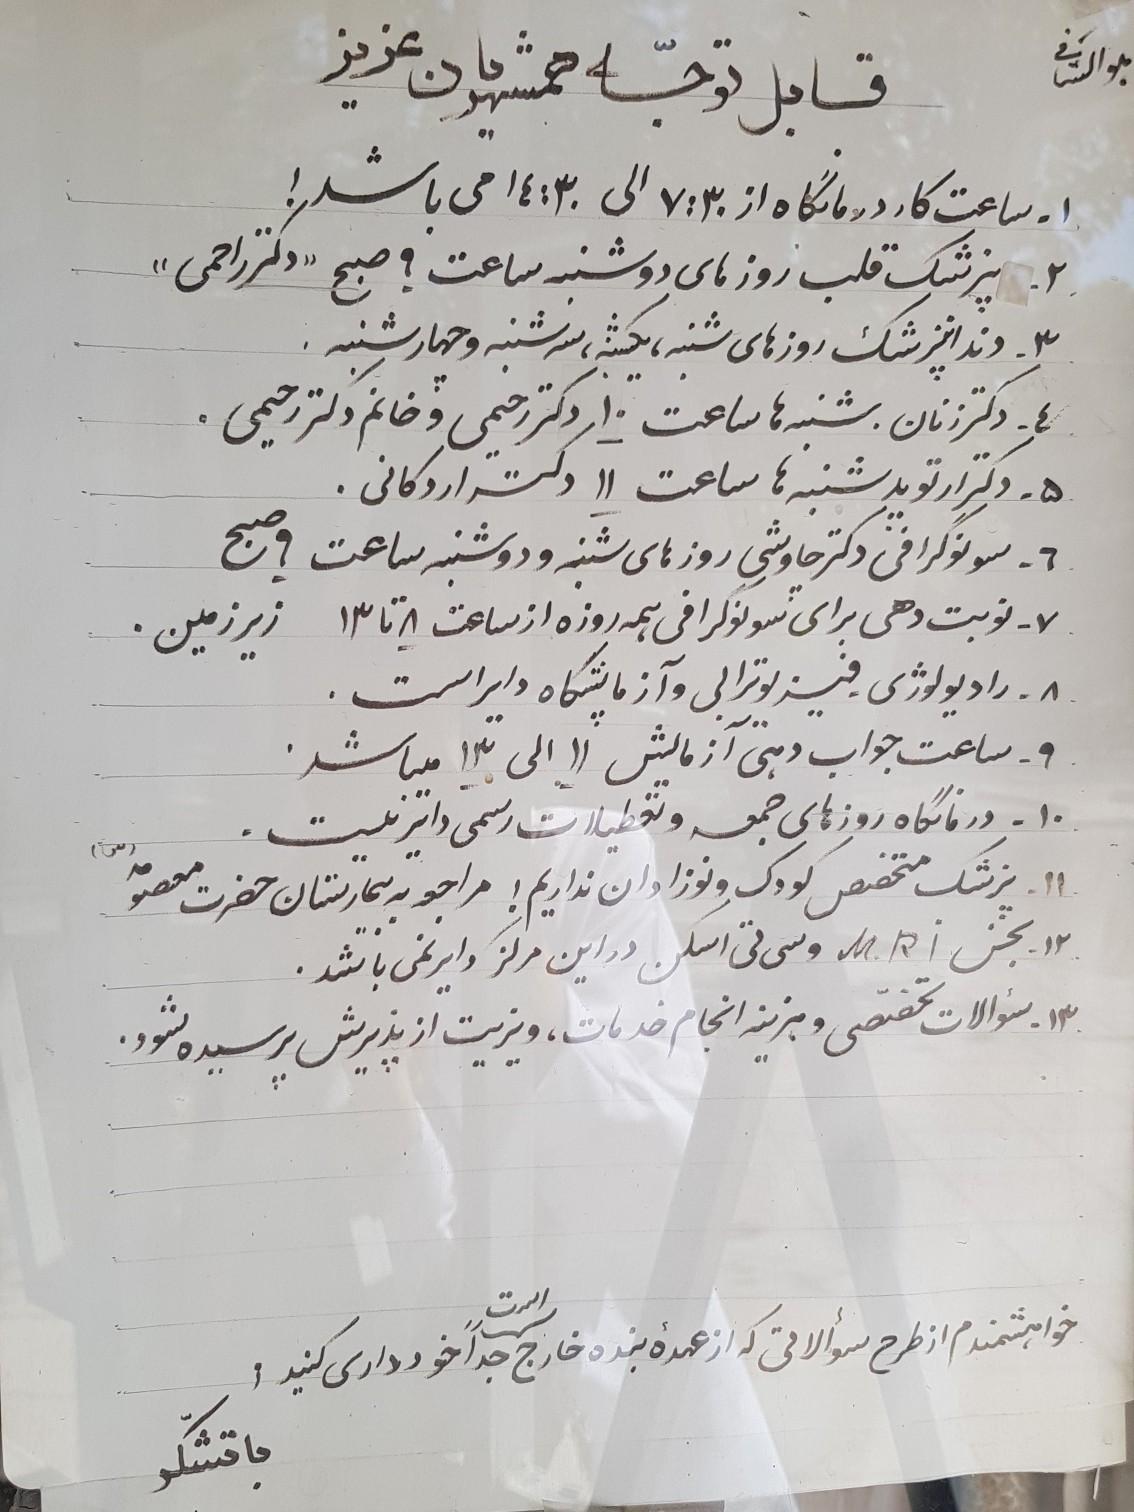 هو الشافی
قابل توجّه همشهریان عزیز
۱- ساعت کار درمانگاه از ۷:۳۰ الی ۱۴:۳۰ می باشد!
۲- پزشک قلب روزهای دوشنبه ساعت ۹ صبح "دکتر راحمی"
۳- دندانپزشک روزهای شنبه، یکشنبه، سه شنبه و چهارشنبه.
۴- دکتر زنان. شنبه ها ساعت ۱۰ دکتر رحیمی و خانم دکتر رحیمی.
۵- دکتر ارتوپد شنبه ها ساعت ۱۱ دکتر اردکانی.
۶- سونوگرافی دکتر چاوشی روزهای شنبه و دوشنبه ساعت ۹ صبح
۷- نوبت دهی برای سونوگرافی همه روزه از ساعت ۸ تا ۱۳ زیرزمین.
۸- رادیولوژی فیزیوتراپی و آزمایشگاه دایر است.
۹- ساعت جواب دهی آزمایش ۱۱ الی ۱۳ میباشد.
۱۰- درمانگاه روزهای جمعه و تعطیلات رسمی دایر نیست.
۱۱- پزشک متخصص کودک و نوزادان نداریم! مراجعه به بیمارستان حضرت معصومه (س)
۱۲- بخش M.Ri و سی تی اسکن در این مرکز دایر نمی باشد.
۱۳- سؤالات تخصّصی و هزینه انجام خدمات، ویزیت از پذیرش پرسیده شود.
خواهشمندم از طرح سؤالاتی که از عهدهٔ بنده خارج است جداً خودداری کنید!
با تشکّر